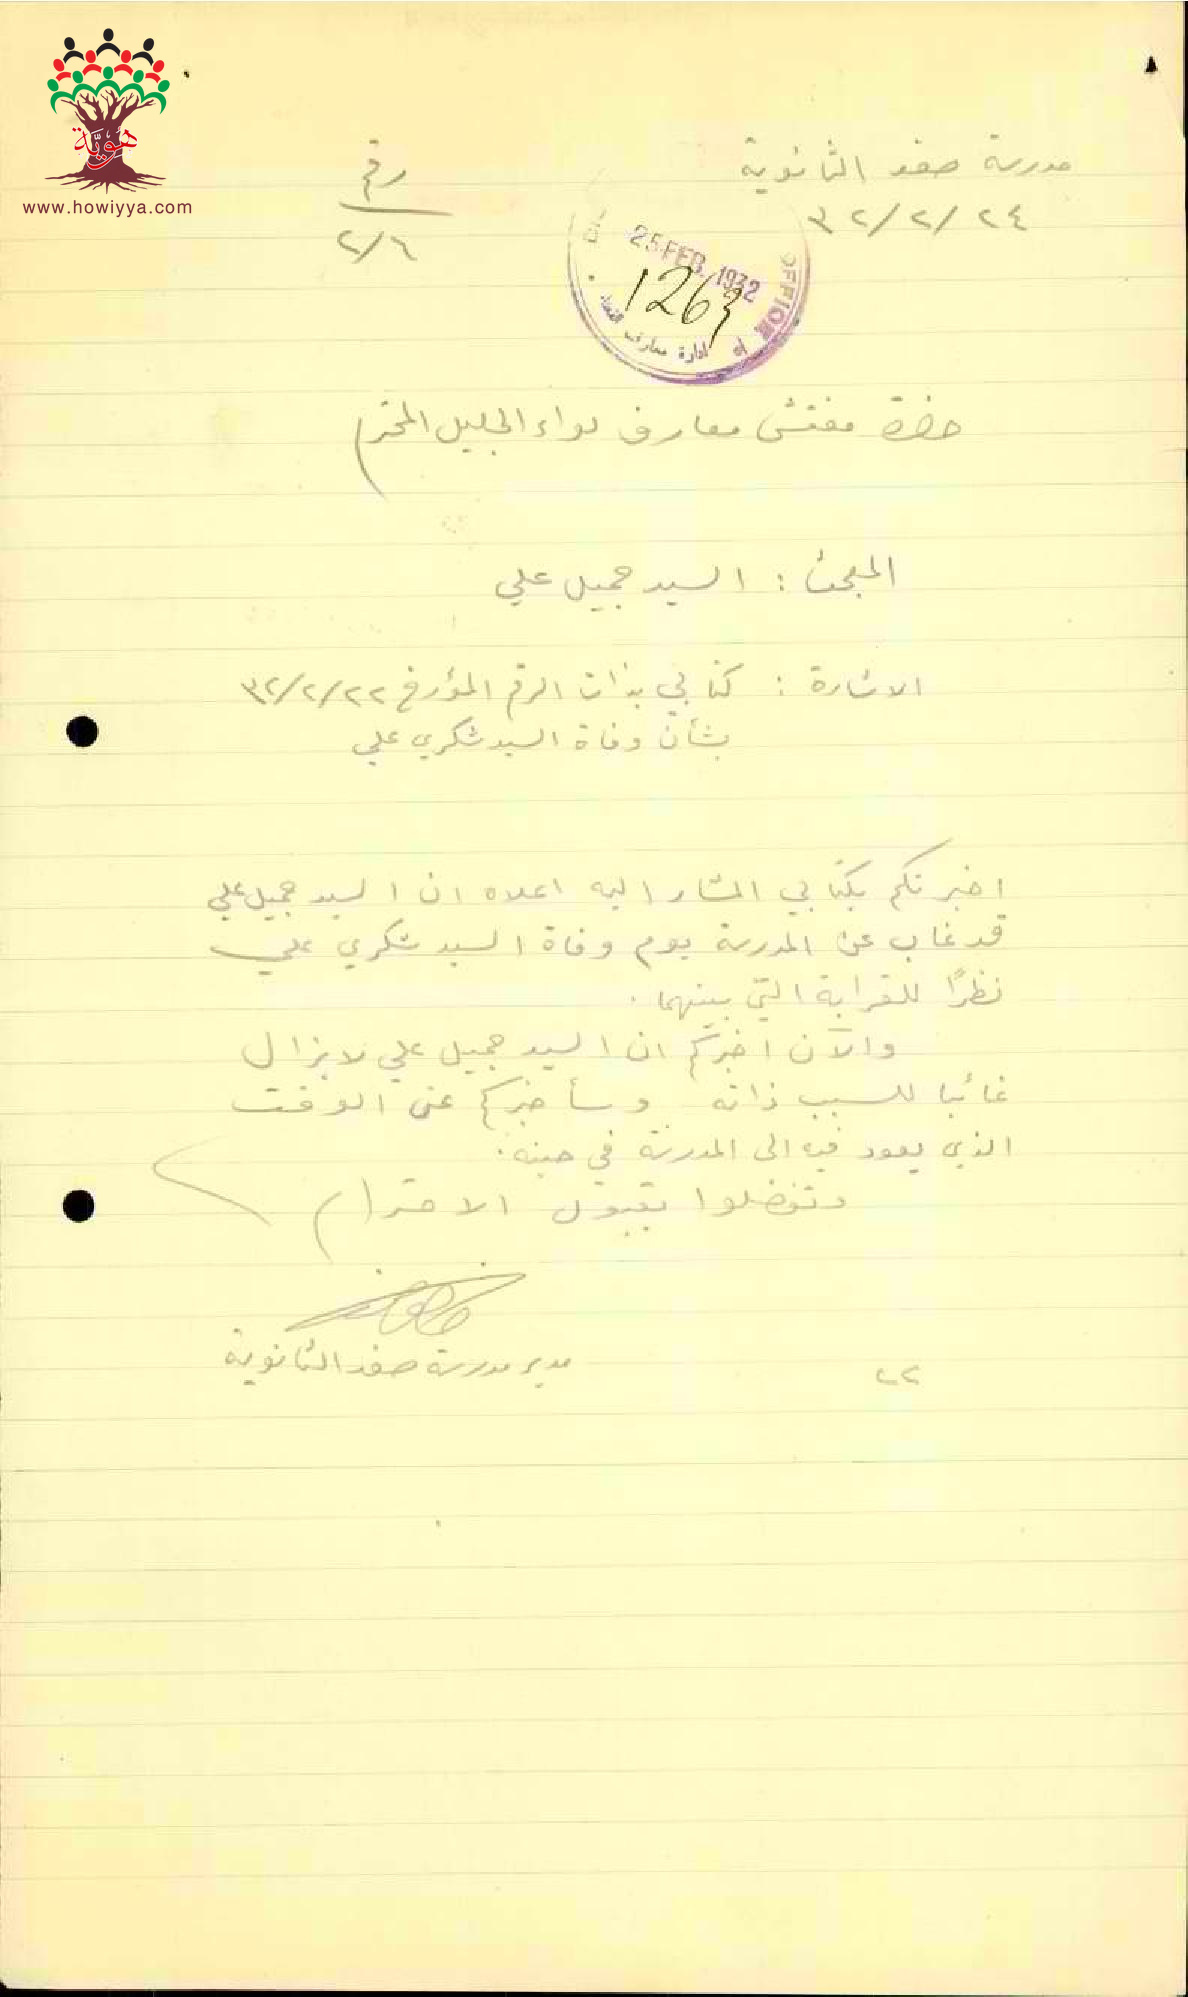 هوية
www.howiyya.com
مدرسة صفد الثانوية
رقم
٣٢/٢/٢٤
٢/٦
25 FEB. 1932
1263
OFFICE
ادارة معارف
حضرة مفتش معارف لواء الجليل المحترم
المبحث : السيد جميل علي
الاشارة : كتابي بذات الرقم المؤرخ ٣٢/٢/٢٢
بشأن وفاة السيد شكري علي
اخبرتكم بكتابي المشار اليه اعلاه ان السيد جميل علي
قد غاب عن المدرسة يوم وفاة السيد شكري علي
نظرًا للقرابة التي بينهما .
والآن اخبركم ان السيد جميل علي لا يزال
غائبا للسبب ذاته وسأخبركم عن الوقت
الذي يعود فيه الى المدرسة في حينه .
وتفضلوا بقبول الاحترام
مدير مدرسة صفد الثانوية
٢٢